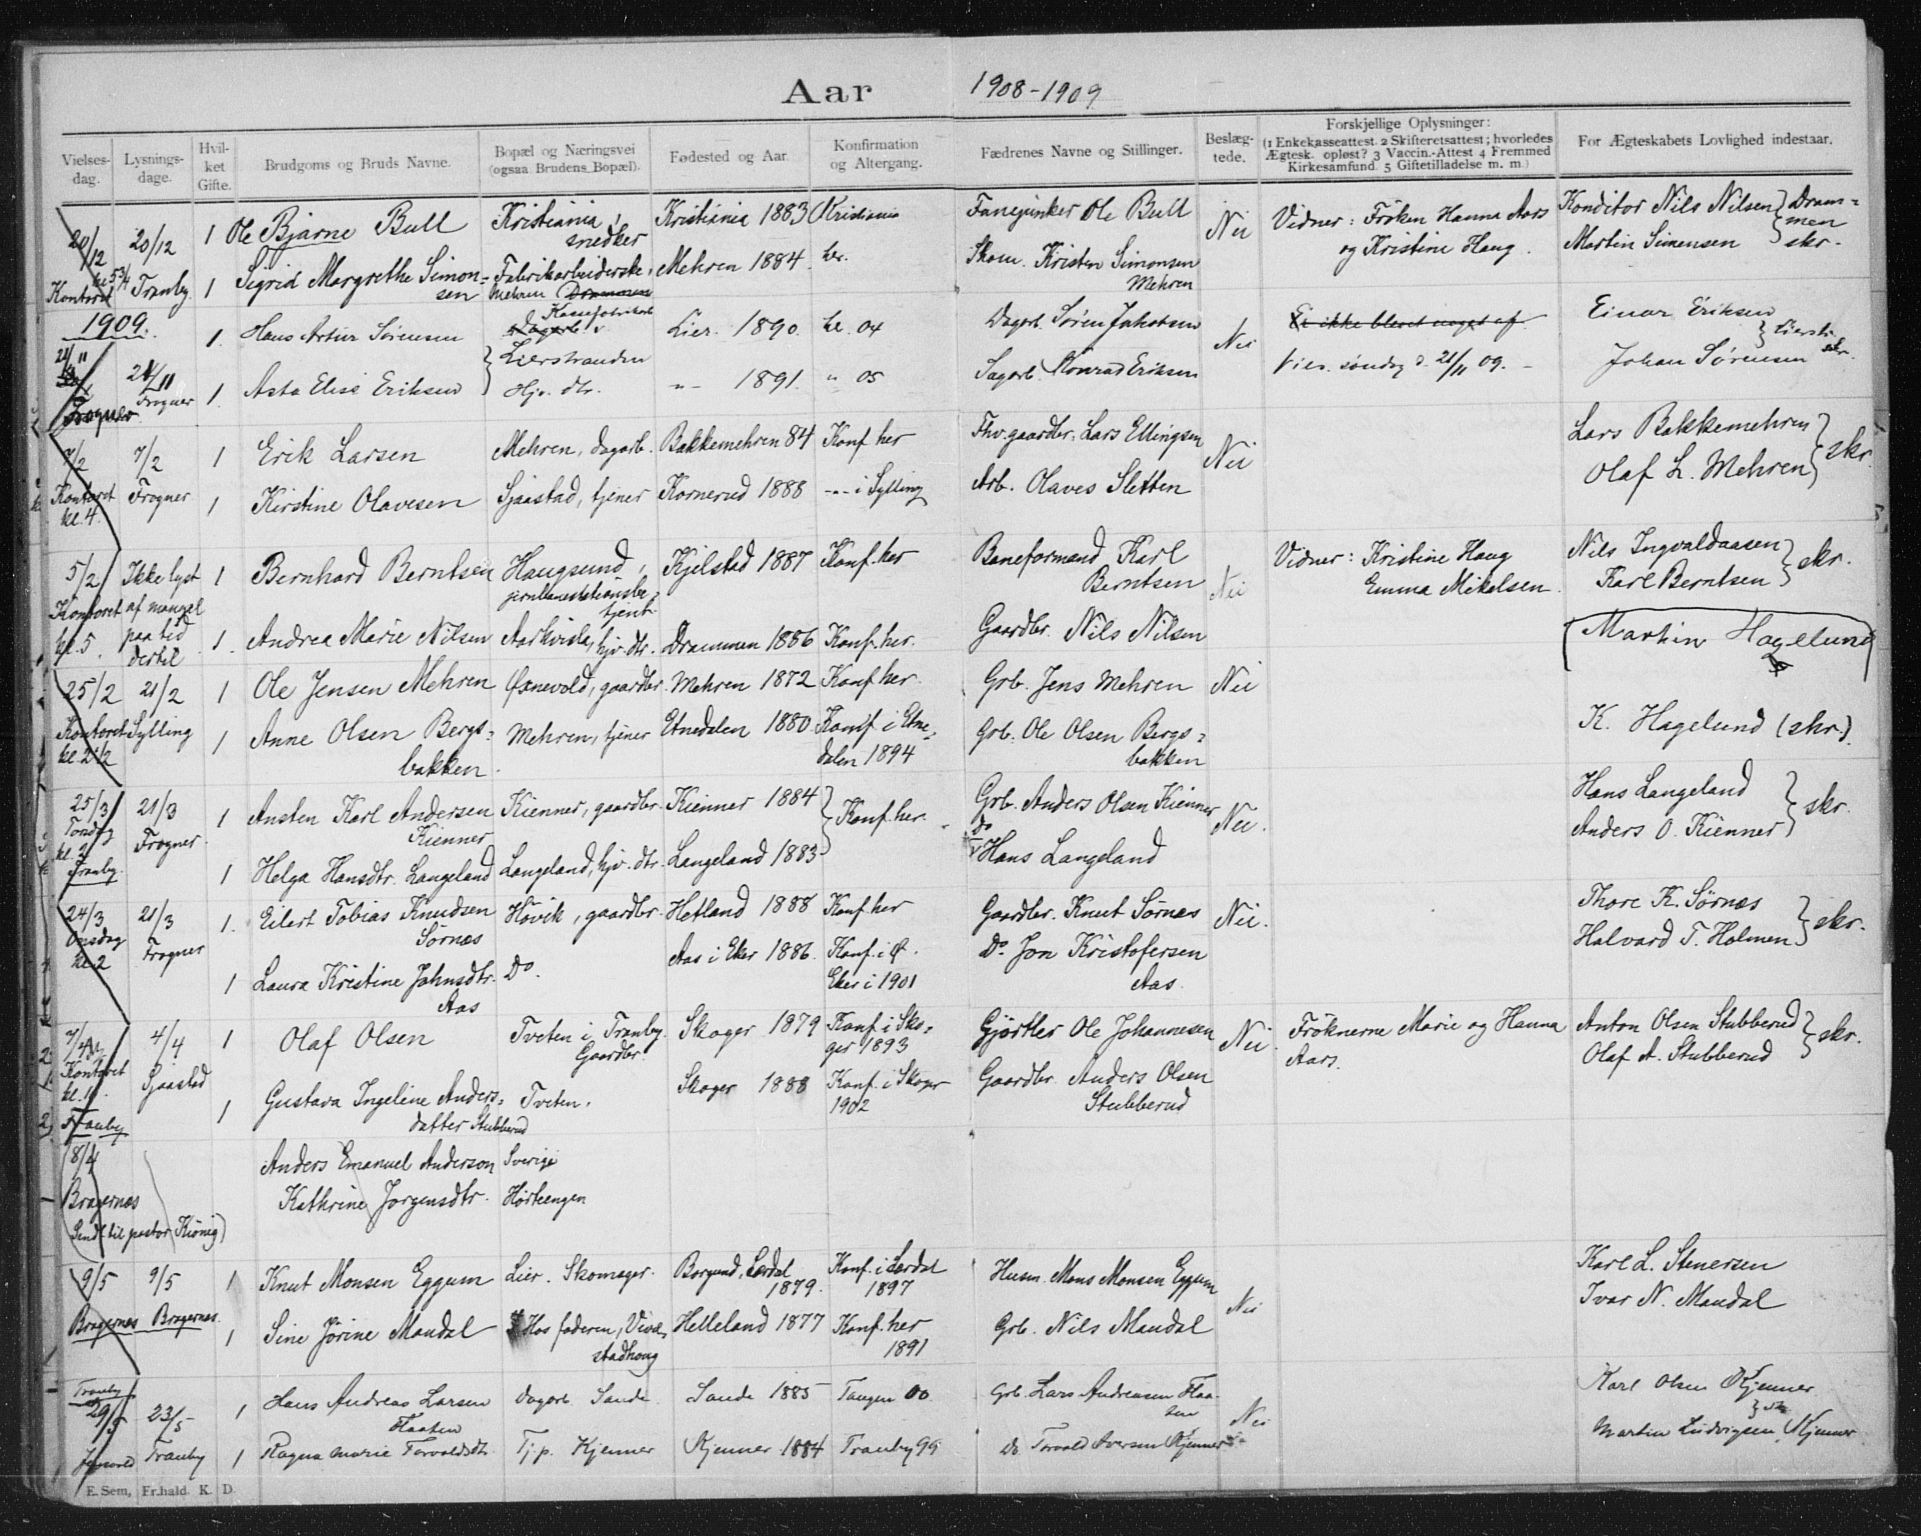 Aar 1908-1909
Vielses-dag. Lysnings-dage. Hvil-ket Gifte. Brudgoms og Bruds Navne. Bopæl og Næringsvei (ogsaa Brudens Bopæl). Fødested og Aar. Konfirmation og Altergang. Fædrenes Navne og Stillinger. Beslæg-tede. Forskjellige Oplysninger: (1 Enkekasseattest. 2 Skifteretsattest; hvorledes Ægtesk. opløst? 3 Vaccin.-Attest 4 Fremmed Kirkesamfund. 5 Giftetilladelse m. m.) For Ægteskabets Lovlighed indestaar.
20/12 20/12 1 Ole Bjarne Bull Kristiania, snedker Kristiania 1883 Kristiania Fanejunker Ole Bull Nei Vidner: Frøken Hanna Aars og Kristine Haug. Konditor Nils Nilsen } Dram=men
Kontoret kl. 5 3/4 Tranby 1 Sigrid Margrethe Simon=sen Fabrikarbeiderske, Mehren Drammen Mehren 1884. her. Skom. Kristen Simonsen Mehren Martin Simensen skr.
1909.
21/11 21/11 1. Hans Artur Sørensen Dagarb. Lier. 1890. he. 04 Dagarb. Søren Jakobsen Nei Er ikke blevet noget af. Einar Eriksen
Frogner Frogner 1. Asta Elise Eriksen } Lierstranden Hjv. dtr. -"- 1891. " 05 Sagarb. Konrad Eriksen Vies. søndag d. 21/11 09. - Johan Sørensen
7/2 7/2 1 Erik Larsen Mehren, dagarb. Bakkemehren 84 Konf her Fhv. gaardbr. Lars Ellingsen Nei Lars Bakkemehren } skr.
Kontoret kl. 4. Frogner 1 Kirstine Olavesen Sjaastad, tjener Kornerud 1888 -"- i Sylling Arb. Olaves Sletten Olaf L. Mehren
5/2 Ikke lyst 1 Bernhard Berntsen Haugsund, jernbanestationsbe=tjent Kjelstad 1887 Konf. her Baneformand Karl Berntsen Nei Vidner: Kristine Haug Emma Mikelsen. Nils Ingvaldaasen } skr.
Karl Berntsen
Kontoret kl. 5. af mangel paa tid dertil 1. Andrea Marie Nilsen Aarkvisla, hjv. dtr. Drammen 1886 Konf. her. Gaardbr. Nils Nilsen (Martin Hagelund
25/2 21/2 1 Ole Jensen Mehren Øxnevold, gaardbr. Mehren 1872 Konf. her. Grb. Jens Mehren Nei
Kontoret kl. 2 1/2 Sylling 1 Anne Olsen Bergs=bakken. Mehren, tjener Etnedalen 1880 Konf. i Etne=dalen 1894 Grb. Ole Olsen Bergs=bakken K. Hagelund (skr.).
25/3 Torsdag kl. 2 Tranby 21/3 Frogner. 1 Ansten Karl Andersen Kienner Kienner, gaardbr. Kienner 1884 } Konf. her. Grb. Anders Olsen Kienner Nei. Hans Langeland } skr.
1 Helga Hansdtr. Langeland Langeland, hjv. dtr. Langeland 1883 Do Hans Langeland Anders O. Kienner
24/3 Onsdag kl. 2 21/3 Frogner 1. Eilert Tobias Knudsen Sørnæs Høvik, gaardbr. Hetland 1888 Konf. her Gaardbr. Knut Sørnæs Nei. Thore K. Sørnæs } skr.
1 Laura Kristine Johnsdtr. Aas Do. Aas i Eker 1886. Konf. i Ø. Eker i 1901 Do. Jon Kristofersen Aas. Halvard T. Holmen
7/4 Kontoret kl. 1 4/4 Sjaastad 1 Olaf Olsen Tveten i Tranby. Gaardbr. Skoger 1879 Konf. i Sko=ger 1893 Gjørtler Ole Johannesen Nei. Frøknerne Marie og Hanna Aars. Anton Olsen Stubberud } skr.
Olaf A. Stubberud
Tranby 1 Gustava Ingeline Anders=datter Stubberud Tveten. Skoger 1888 Konf. i Skoger 1902 Gaardbr. Anders Olsen Stubberud
8/4 Anders Emanuel Anderson Sverige
Bragernæs Kathrine Jorgensdtr. Horteengen
Sendt til pastor Kiønig)
9/5 9/5 1 Knut Monsen Eggum Lier. Skomager. Borgund, Lærdal 1879. Konf. i Lærdal 1897 Husm. Mons Monsen Eggum Nei Karl L. Stenersen
Bragernæs Bragernæs. 1 Sine Jørine Mandal Hos faderen, Vive=stadhaug Helleland 1877 Konf. her 1891 Grb. Nils Mandal Ivar N. Mandal
Tranby 29/5 23/5 1 Hans Andreas Larsen Flaaten Dagarb. Sande. Sande 1885 Tangen 00 Grb. Lars Andreasen Flaa=ten Nei Karl Olsen Kjenner
Tranby 1 Ragna Marie Torvaldsdtr. Tj. p. Kjenner Kjenner 1884 Tranby 99 Do. Torvald Iversen Kjenner Martin Ludvigsen Kjenner
E. Sem, Fr.hald K. D.